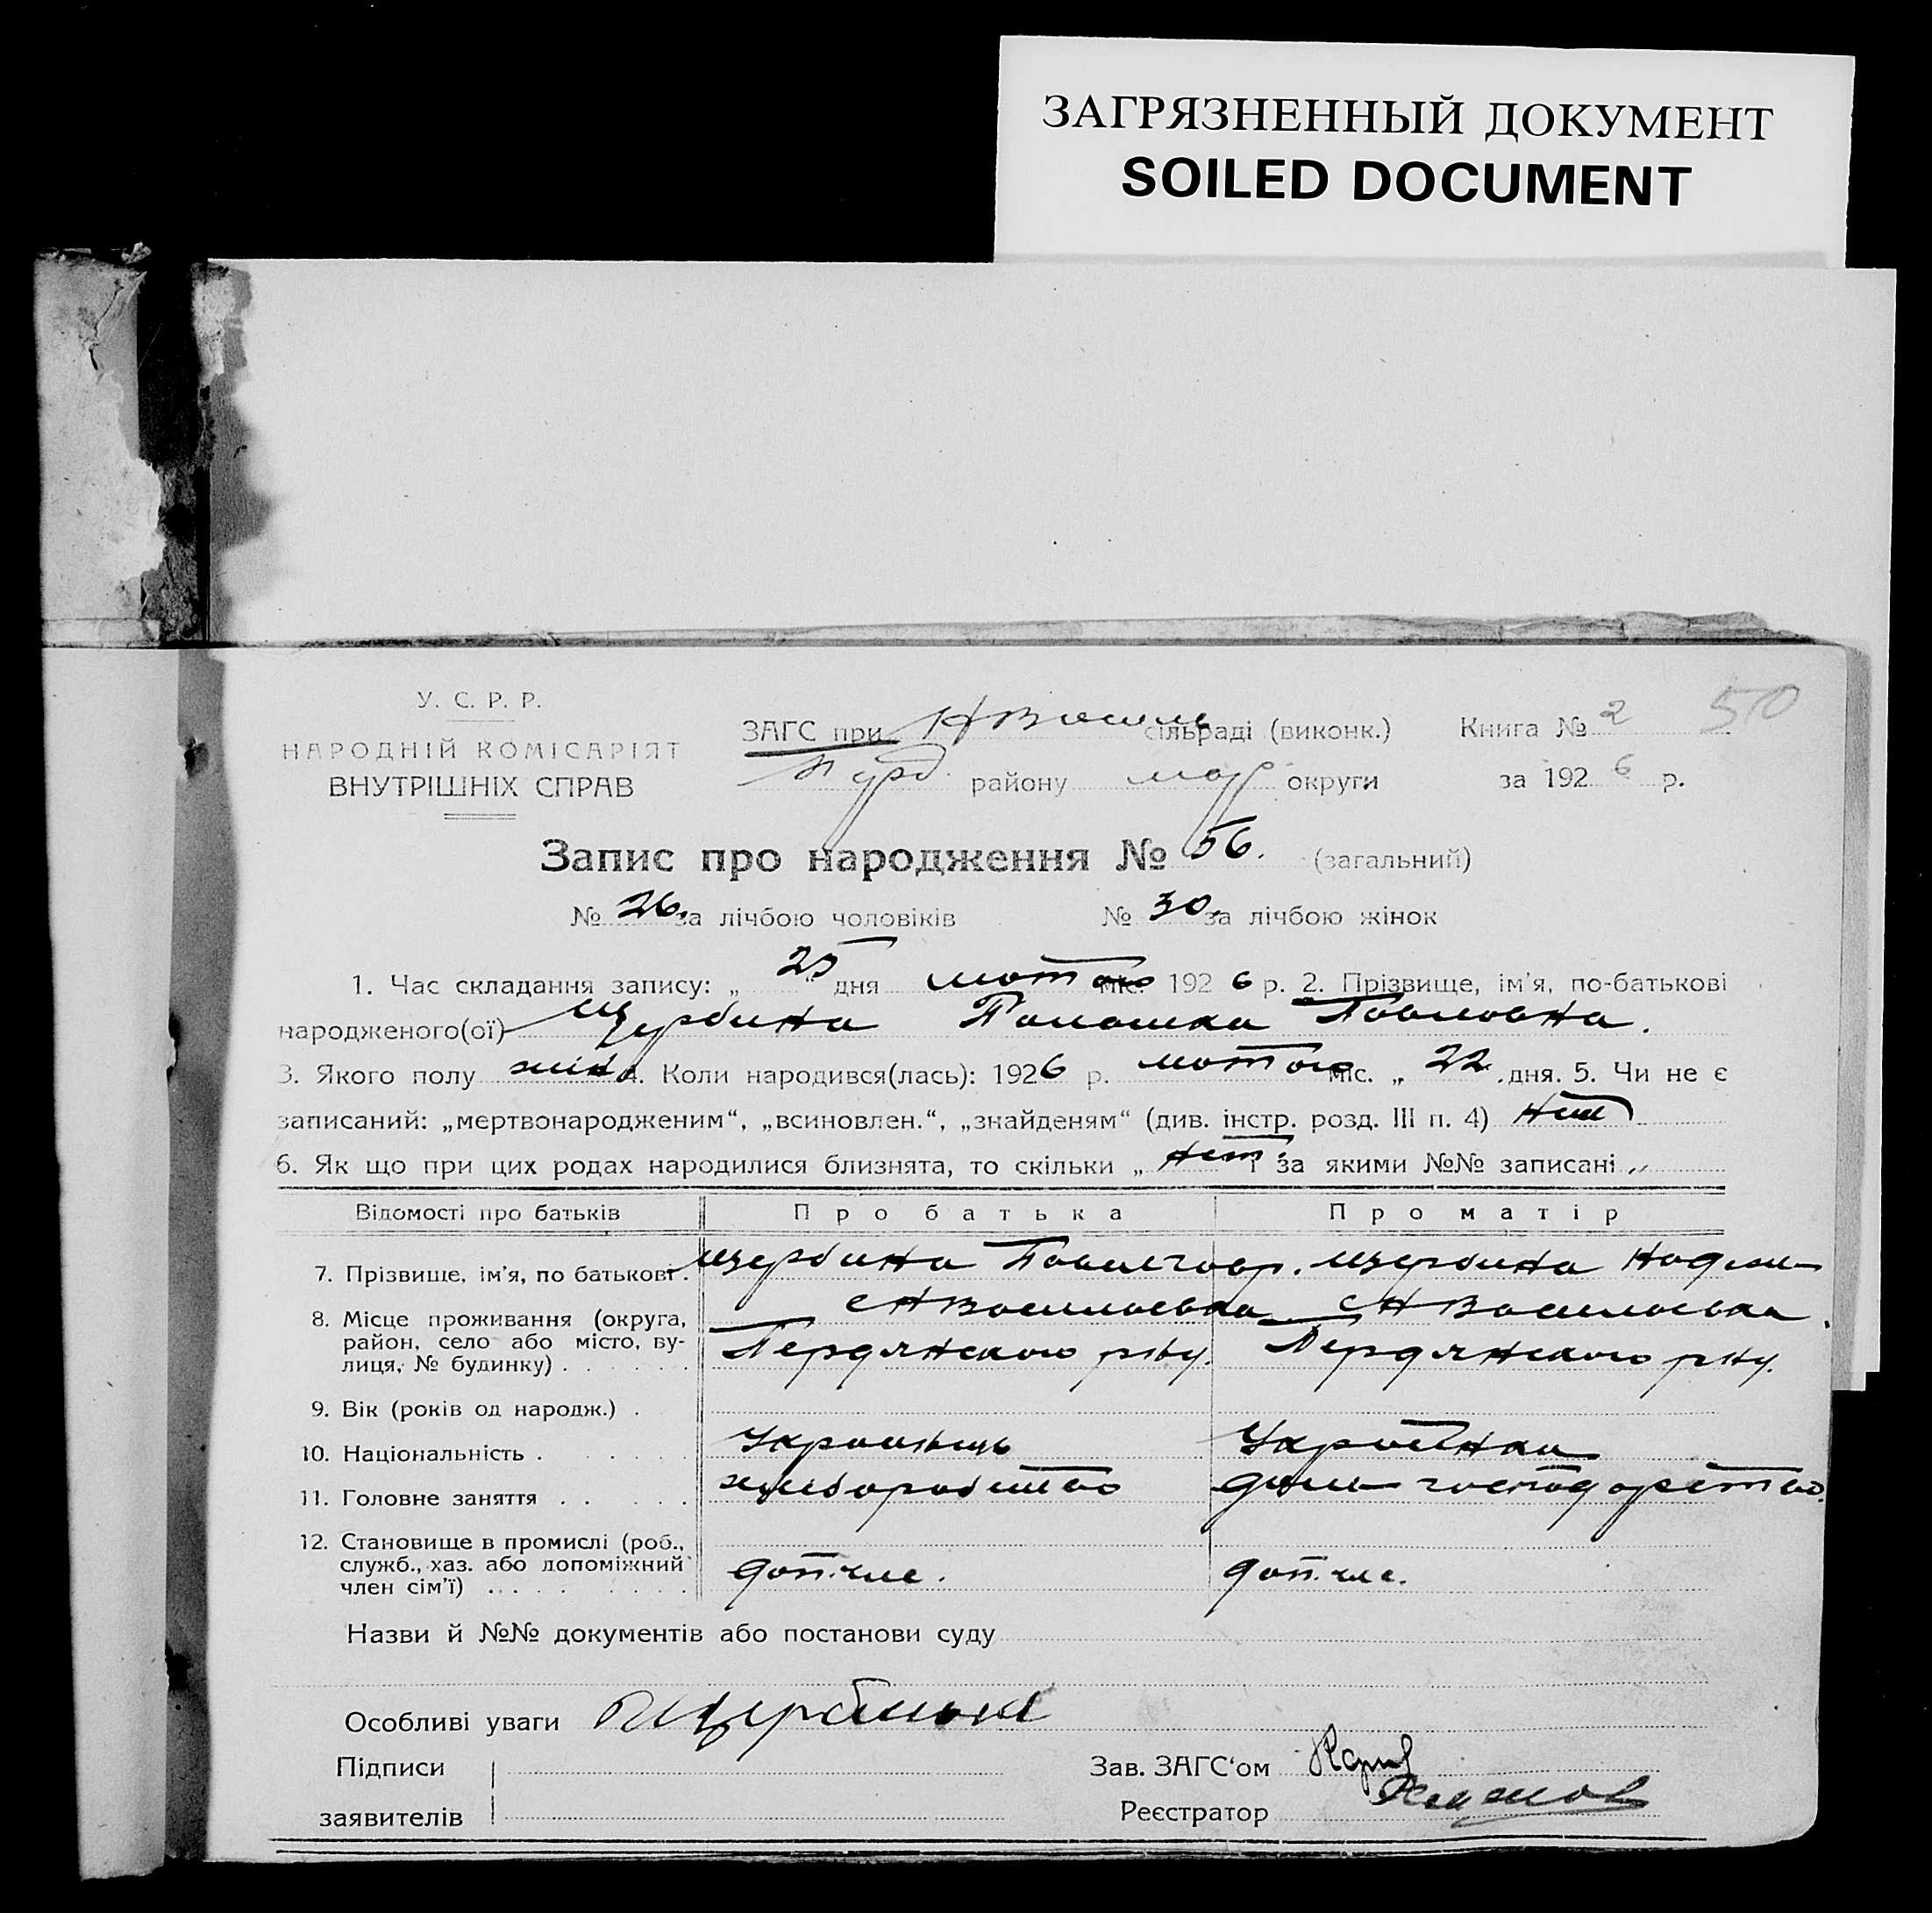 ЗАГРЯЗНЕННЫЙ ДОКУМЕНТ
SOILED DOCUMENT
У. С. Р. Р.
НАРОДНІЙ КОМІСАРІЯТ
ВНУТРІШНІХ СПРАВ
ЗАГС при сільраді (виконк.) Книга № 2 50
району округи за 1926 р.
Запис про народження № 56. (загальний)
№ 26. за лічбою чоловіків № 30. за лічбою жінок
1. Час складання запису: „25“ дня лютого міс. 1926 р. 2. Прізвище, ім'я, по-батькові
народженого(ої) Щербина Павловна.
3. Якого полу жін. 4. Коли народився(лась): 1926 р. лютого міс. „ 22 дня. 5. Чи не є
записаний: „мертвонародженим“, „всиновлен.“, „знайденям“ (див. інстр. розд. III п. 4) нет
6. Як що при цих родах народилися близнята, то скільки „ нет і за якими №№ записані „
Відомості про батьків Про батька Про матір
7. Прізвище, ім'я, по батькові . Щербина Павил Щербина
8. Місце проживання (округа, с Н Василівка с Н Василівка
район, село або місто, ву-
лиця, № будинку) . Бердянского р-ну. Бердянского р-ну.
9. Вік (років од народж.) .
10. Національність . Українець Українка
11. Головне заняття . . хліборобство дом господарство.
12. Становище в промислі (роб.,
служб., хаз. або допоміжний
член сім'ї) . . доп. чле. доп. чле.
Назви й №№ документів або постанови суду
Особливі уваги
Підписи Зав. ЗАГС'ом
заявителів Реєстратор